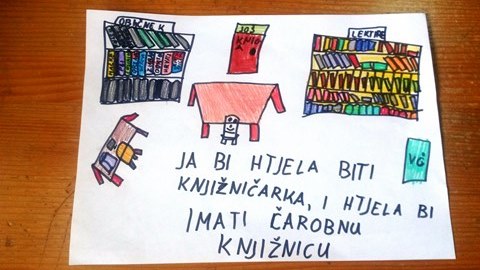 OBIČNE K
JOŠ
KNJIGA
LEKTIRE
VČ
JA BI HTJELA BITI
KNJIŽNIČARKA, I HTJELA BI
IMATI ČAROBNU
KNJIŽNICU